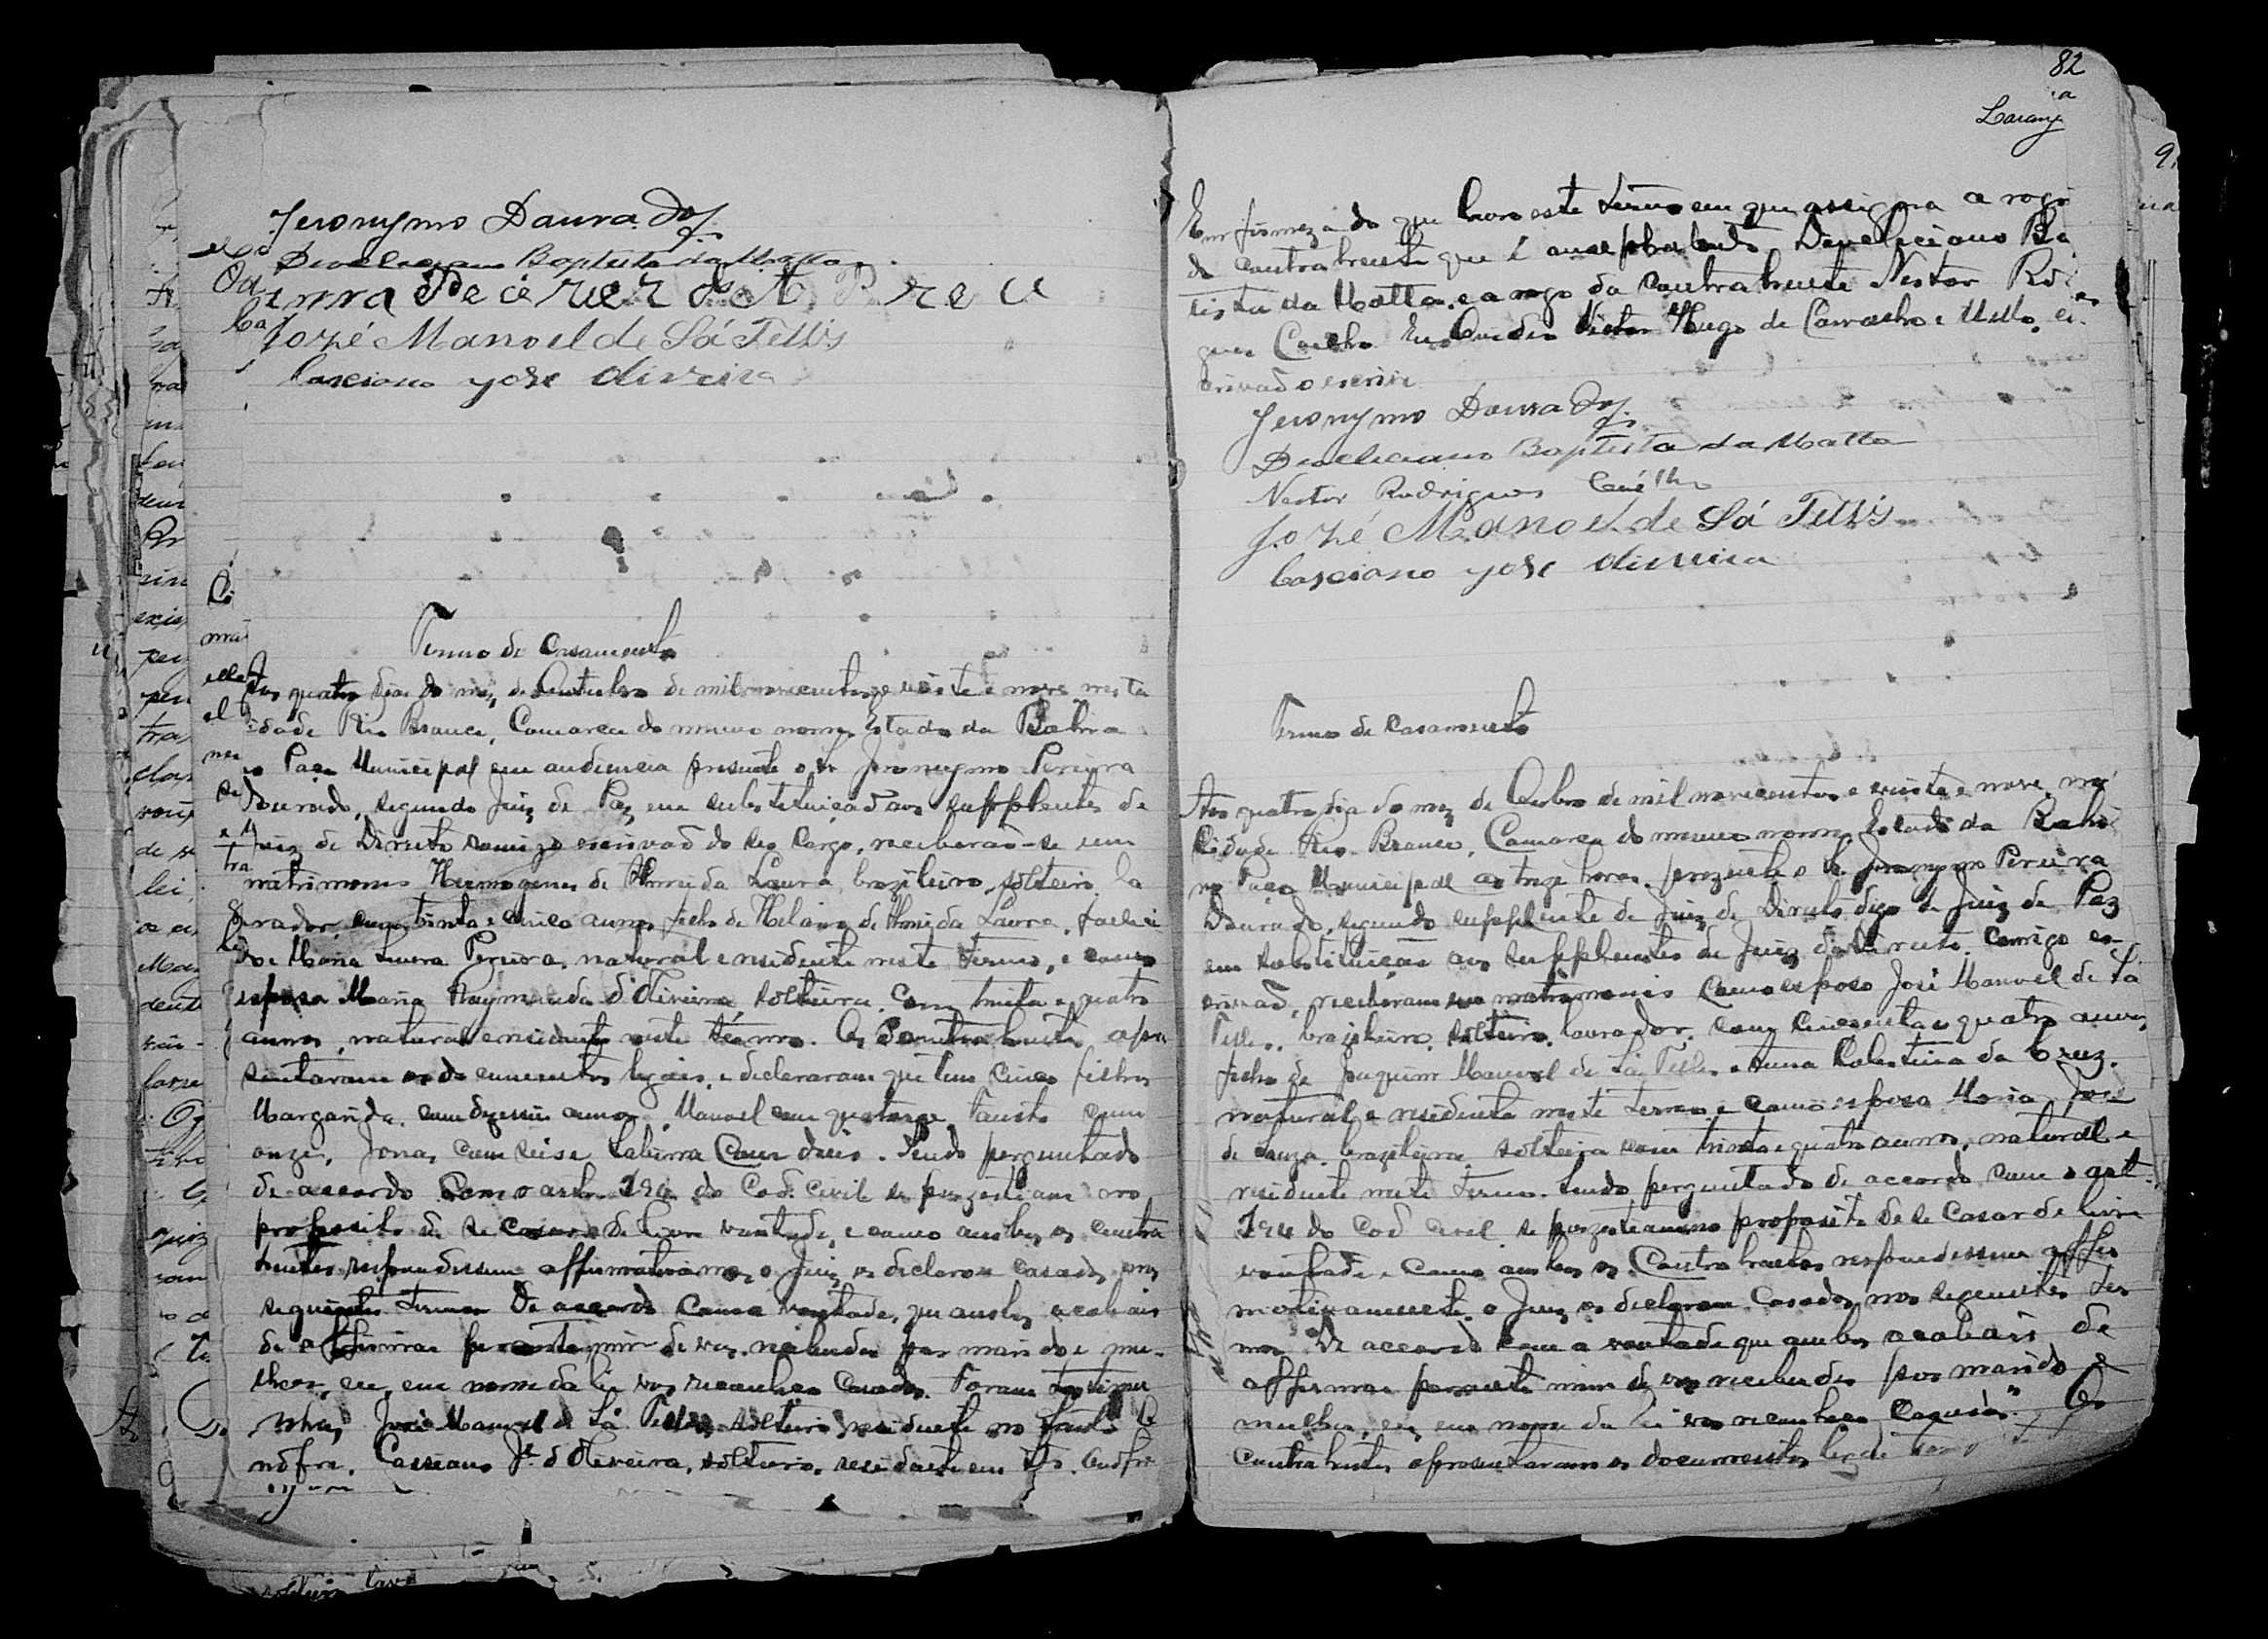 Jeronymo Dourado
Deocleciano Baptista da Matta
José Manoel de Sá Telles
Casciano José Oliveira
Termo de Casamento
Aos quatro dias do mez de Outubro de mil novecentos e vinte e nove nesta
cidade Rio Branco, Comarca do mesmo nome Estado da Bahia
no Paço Municipal em audiencia presente o Sr Jeronymo Pereira
Dourado, segundo Juiz de Paz em substituição aos supplentes de
Juiz de Direito comigo escrivão do seo cargo, receberão-se em
matrimonio Hermogenes de Almeida Laura, brazileiro, solteiro, la
vrador, com trinta e cinco annos, filho de de Almeida Laura, falleci
do e Maria Pereira, natural e residente neste termo, e como
esposa Maria Raymunda d'Oliveira, solteira, com trinta e quatro
annos, natural e residente neste termo. Os contrahentes apre
sentaram os documentos legaes, e declararam que tem cinco filhos
Margarida, com annos, Manoel com quatorze, Fausto com
onze, Jonas com seis e com dois. Sendo perguntado
de accordo com o art. 194 do Cod. Civil se persistiam no
proposito de se casar de livre vontade, e como ambos os contra
hentes respondessem affirmativamente o Juiz os declarou casados nos
seguintes termos De accordo com a vontade, que ambos acabais
de affirmar perante mim de vos receberdes por marido e mu-
lher, eu, em nome da lei vos reconheço Casados. Foram testemu
nhas José Manoel de Sá Telles, solteiro, residente no
Cassiano Je. d'Oliveira, solteiro, residente em
82
Laranj
Em firmeza do que lavro este termo em que assigna a rogo
do contrahente que é analphabeto Deocleciano Ba
tista da Matta, e a rogo da contrahente Nestor Rodri
gues Coelho. Eu Victor Hugo de Carvalho e Mello, es-
crivão o escrivi
Jeronymo Dourado
Deocleciano Baptista da Matta
Nestor Rodrigues Coêlho
José Manoel de Sá Telles
Casciano José Oliveira
Termo de Casamento
Aos quatro dia do mez de Outubro de mil novecentos e vinte e nove, na
Cidade Rio Branco, Comarca do mesmo nome, Estado da Bahia
no Paço Municipal as treze horas, prezente o Sr. Jeronymo Pereira
Dourado, segundo supplente de Juiz de Direito digo de Juiz de Paz
em substituição aos supplentes de Juiz de Direito, comigo es-
crivão, receberam em matrimonio como esposo José Manoel de Sá
Telles, brazileiro, solteiro, lavrador, com cincoenta e quatro annos,
filho de Joaquim Manoel de Sá Telles e Anna da Cruz,
natural e residente neste termo e como esposa Maria José
de Souza, brazileira, solteira com trinta e quatro annos, natural e
residente neste termo. Sendo perguntado de accordo com o art.
194 do Cod Civil se persisteam no proposito de se casar de livre
vontade e como ambos os Contrahentes respondessem affir
mativamente o Juiz os declarou Casados nos seguintes ter
mos "De accordo com a vontade que ambos acabais de
affirmar perante mim de vos receberdes por marido e
mulher, eu, em nome da lei vos reconheço Casados." Os
Contrahentes apresentaram os documentos